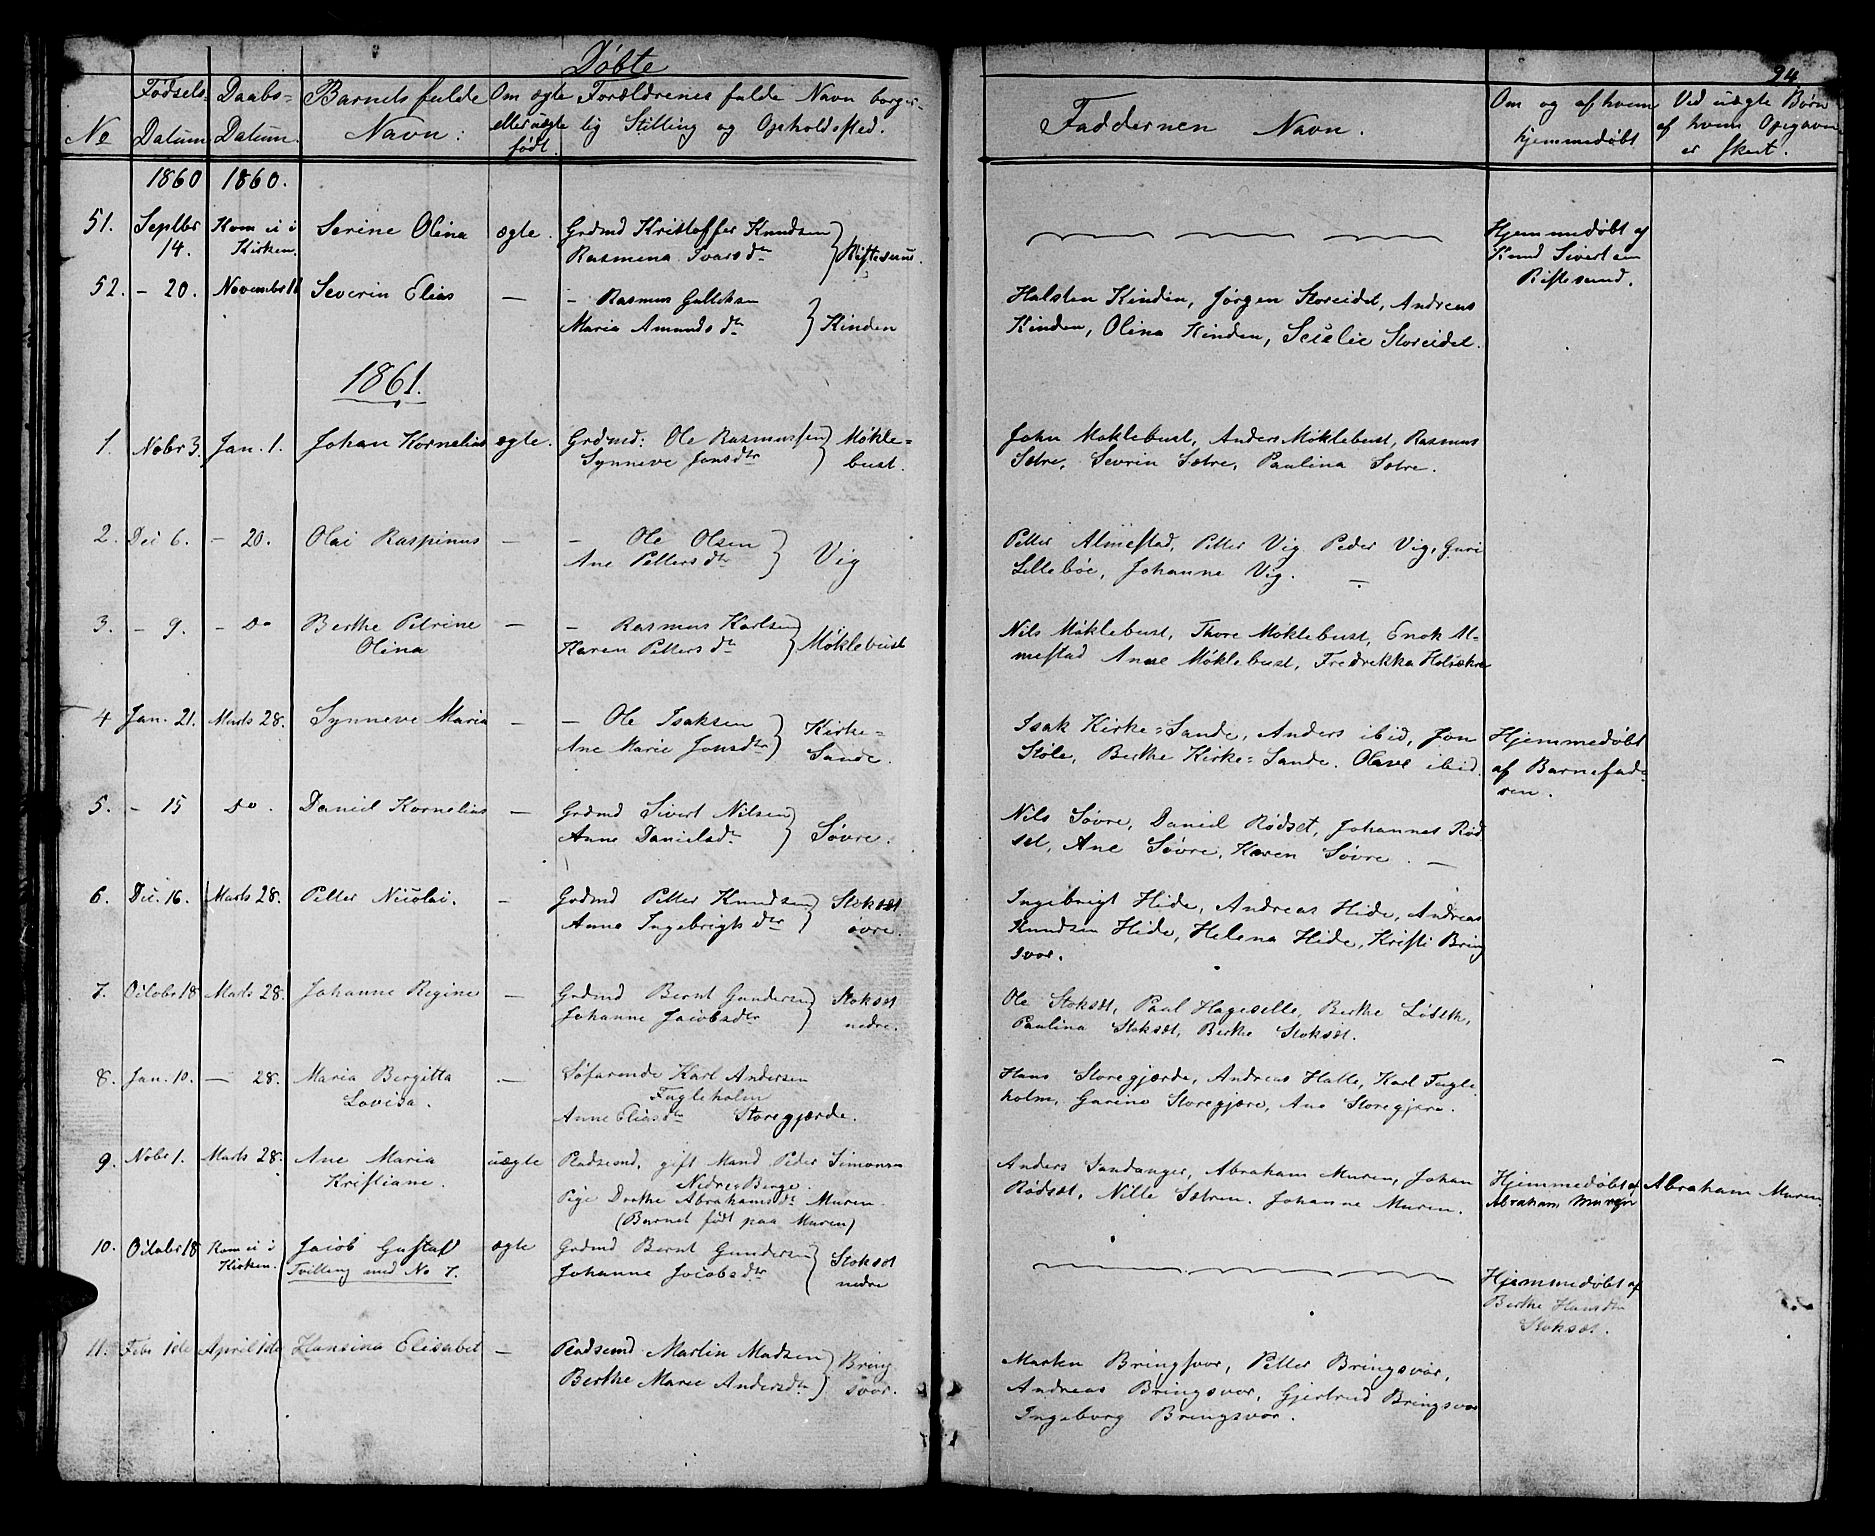 Döbte
24
No
Fødsels-
Datum
Daabs-
Datum.
Barnets fulde
Navn:
Om ægte
eller uægte
født.
Forældrenes fulde Navn borger-
lig Stilling og Opholdssted.
Faddernes Navn.
Om og af hvem
hjemmedøbt
Ved uægte Børn
af hvem Opgaven
er skeet.
1860 1860.
51. Septbr 14. Kom ei i Kirken. Serine Olina ægte. Grdmd Kristoffer Knudsen
Rasmena Ivars dtr } Riftesund.
Hjemmedøbt af
Knud Sivertsen
Riftesund.
52. – 20. November 11 Severin Elias — – Rasmus
Maria Amunds dtr } Kinden
Halsten Kinden, Jørgen Storeidet, Andreas
Kinden, Olina Kinden, Secelie Storeidet.
1861.
1. Nobr 3. Jan. 1. Johan Kornelius ægte. Grdmd: Ole Rasmussen
Synneve Jonsdtr } Møkle-
bust.
John Møklebust, Anders Møklebust, Rasmus
Sætre, Sevrin Sætre, Paulina Sætre.
2. Dec 6. – 20. Olai Raspinus — – Ole Olsen
Ane Petters dtr } Vig
Petter Almestad, Petter Vig Peder Vig, Guri
Lillebøe, Johanne Vig. —
3. – 9. – Do Berthe Petrine
Olina — – Rasmus Karlsen
Karen Petters dtr } Møklebust
Nils Møklebust, Thore Møklebust, Enok Al-
mestad Anne Møklebust, Fredrikka
4 Jan. 21. Marts 28. Synneve Maria — – Ole Isaksen
Ane Marie Jonsdtr } Kirke=
Sande.
Isak Kirke=Sande, Anders ibid, Jon
Støle, Berthe Kirke=Sande. Olave ibid.
Hjemmedøbt
af Barnefade-
ren.
5. – 15 Do. Daniel Kornelius — Grdmd Sivert Nilsen
Anne Danielsdtr } Søvre.
Nils Søvre, Daniel Rødset, Johannes Rød
set, Ane Søvre, Karen Søvre. —
6. Dec. 16. Marts 28. Petter Nicolai. – Grdmd Petter Knudsen
Anne Ingebrigts dtr } Stoksæt
øvre.
Ingebrigt Hide, Andreas Hide, Andreas
Knudsen Hide, Helena Hide, Kristi Bring
svor.
7. Octobr 18 Marts 28. Johanne Regine — Grdmd Bernt Gundersen
Johanne Jacobsdtr } Stoksæt
nedre.
Ole Stoksæt, Paul Hageselle, Berthe Løseth,
Paulina Stoksæt, Berthe Stoksæt.
8. Jan. 10. — 28. Maria Bergitta
Lovisa. — Søfarende Karl Andersen
Fugleholm
Anne Eliasdtr Storegjærde.
Hans Storegjærde, Andreas Hatle, Karl Fugle
holm, Gurine Storegjære, Ane Storegjære.
9. Nobr 1. Marts 28. Ane Maria
Kristiane. uægte Pladsmd, gift Mand Peder Simonsen
Nedre Berge.
Pige Dorthe Abrahamsdtr Muren.
(Barnet født paa Muren)
Anders Sandanger, Abraham Muren, Johan
Rødsæt, Nille Sætren. Johanne Muren.
Hjemmedøbt af
Abraham Muren
Abraham Muren
10. Octobr 18 Kom ei i
Kirken. Jacob Gustaf
Tvilling med No 7. ægte Grdmd Bernt Gundersen
Johanne Jacobsdtr } Stoksæt
nedre
Hjemmedøbt af
Berthe Hansdtr
Stoksæt.
11. Febr 1de April 1de Hansina Elisabet — Pladsmd Martin Madsen
Berthe Marie Andersdtr } Bring
svor.
Marten Bringsvor, Petter Bringsvor,
Andreas Bringsvor, Gjertrud Bringsvor
Ingeborg Bringsvor.